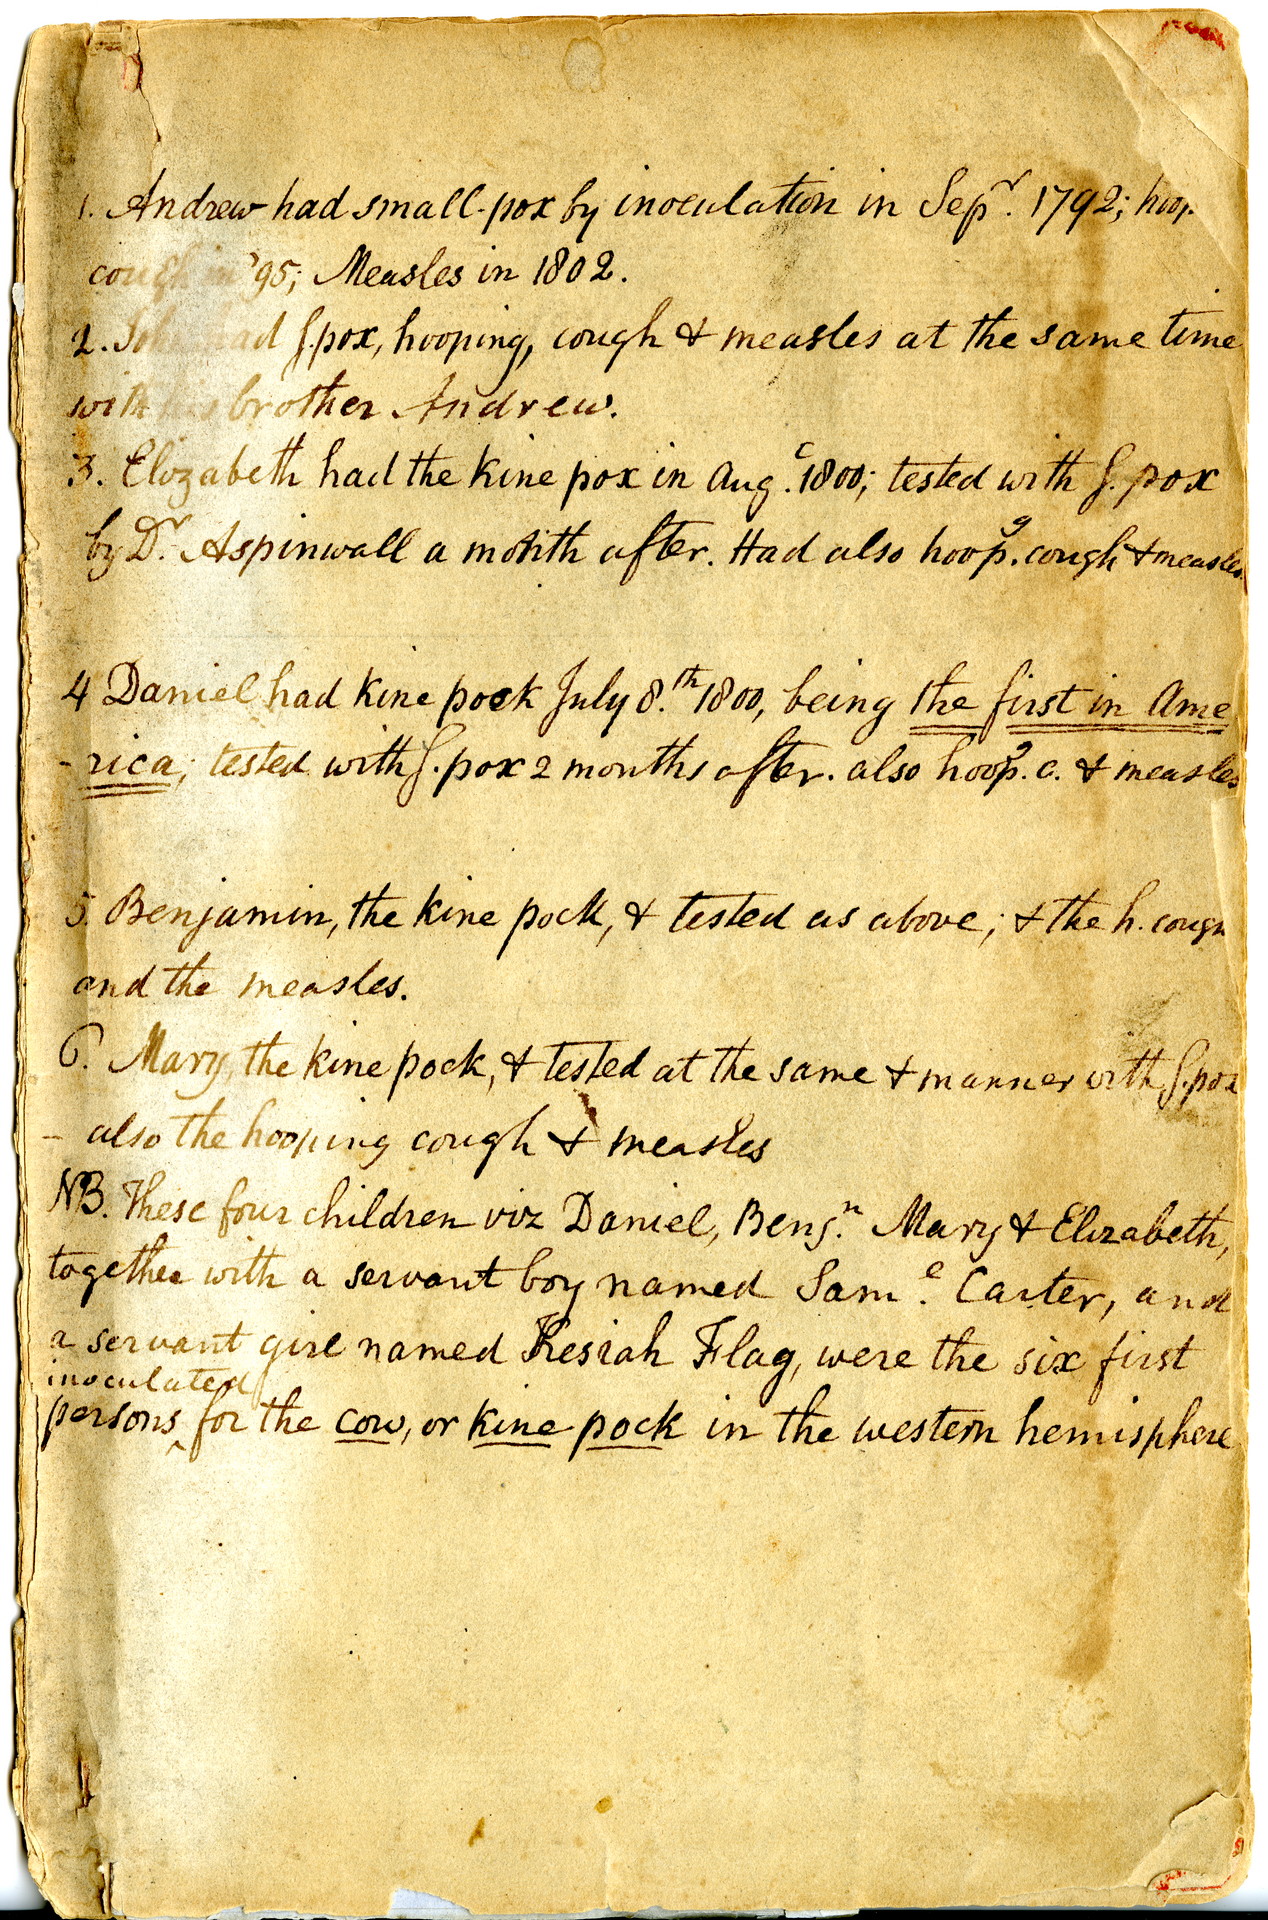 1. Andrew had small-pox by inoculation in Sepr. 1792; hoop
cough in '95; Measles in 1802.
2. John had S.pox, hooping, cough & measles at the same time
with his brother Andrew.
3. Elizabeth had the kine pox in Aug.t 1800; tested with S. pox
by Dr. Aspinwall a month after. Had also hoopg. cough & measles.
4 Daniel had kine pock July 8.th 1800, being the first in Ame
-rica; tested with S.pox 2 months after. also hoopg. c. & measles
5. Benjamin, the kine pock, & tested as above; & the h. cough
and the measles.
6. Mary, the kine pock, & tested at the same & manner with S.pox
- also the hooping cough & measles
NB. These four children viz Daniel, Benj.n Mary & Elizabeth,
together with a servant boy named Sam.l Carter, and
a servant girl named Kesiah Flag, were the six first
inoculated
persons ^ for the cow, or kine pock in the western hemisphere